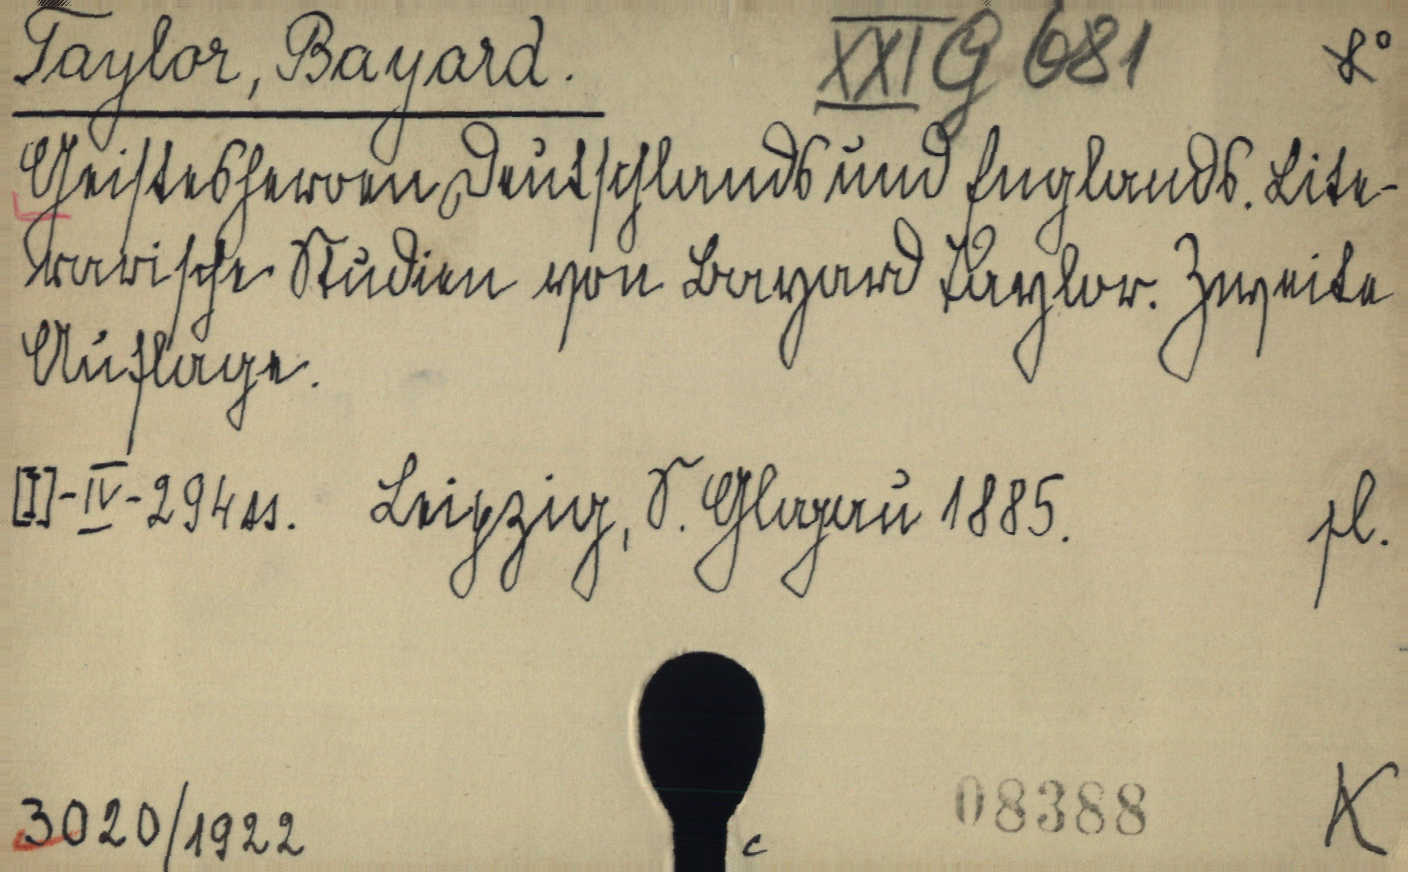 Taylor, Bayard. XXI G 681 8°
Geistesheroen Deutschlands und Englands. Lite-
rarische Studien von Bayard Taylor. Zweite
Auflage.
[I]-IV-294 ss. Leipzig, S. Glogau 1885. pl.
3020/1922 c 08388 K